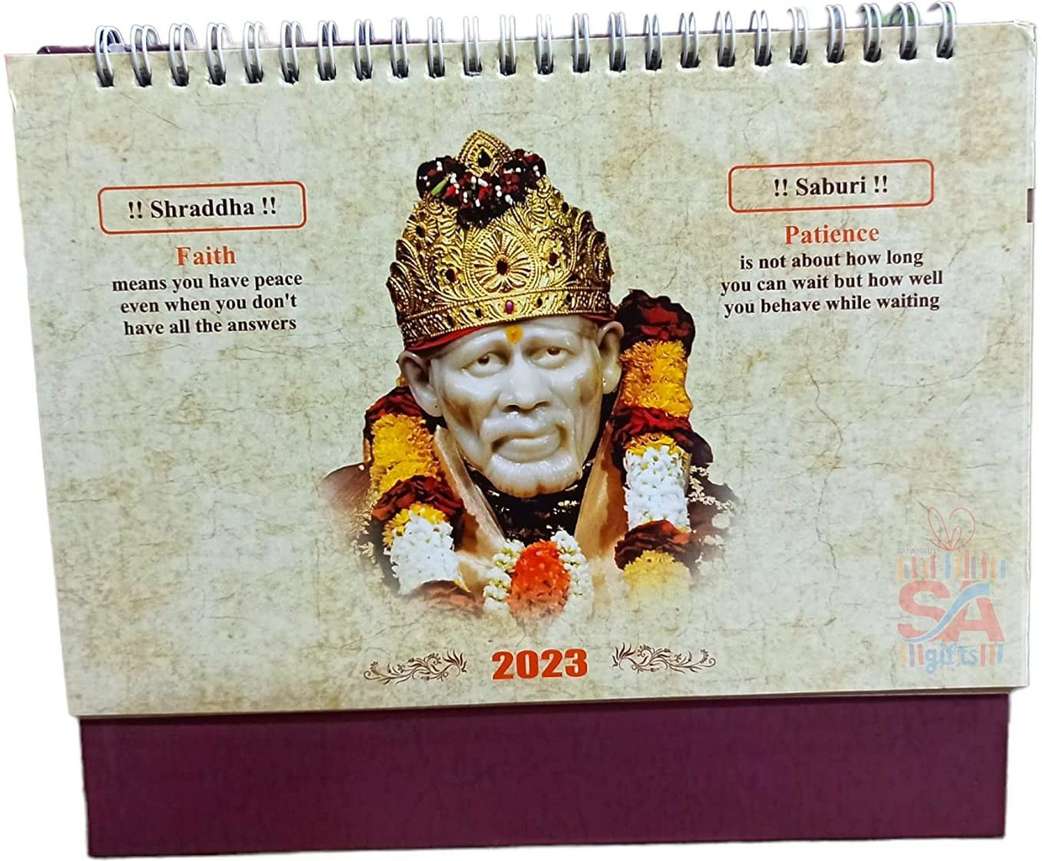 !! Shraddha !!
Faith
means you have peace
even when you don't
have all the answers
!! Saburi !!
Patience
is not about how long
you can wait but how well
you behave while waiting
2023
SA
gifts